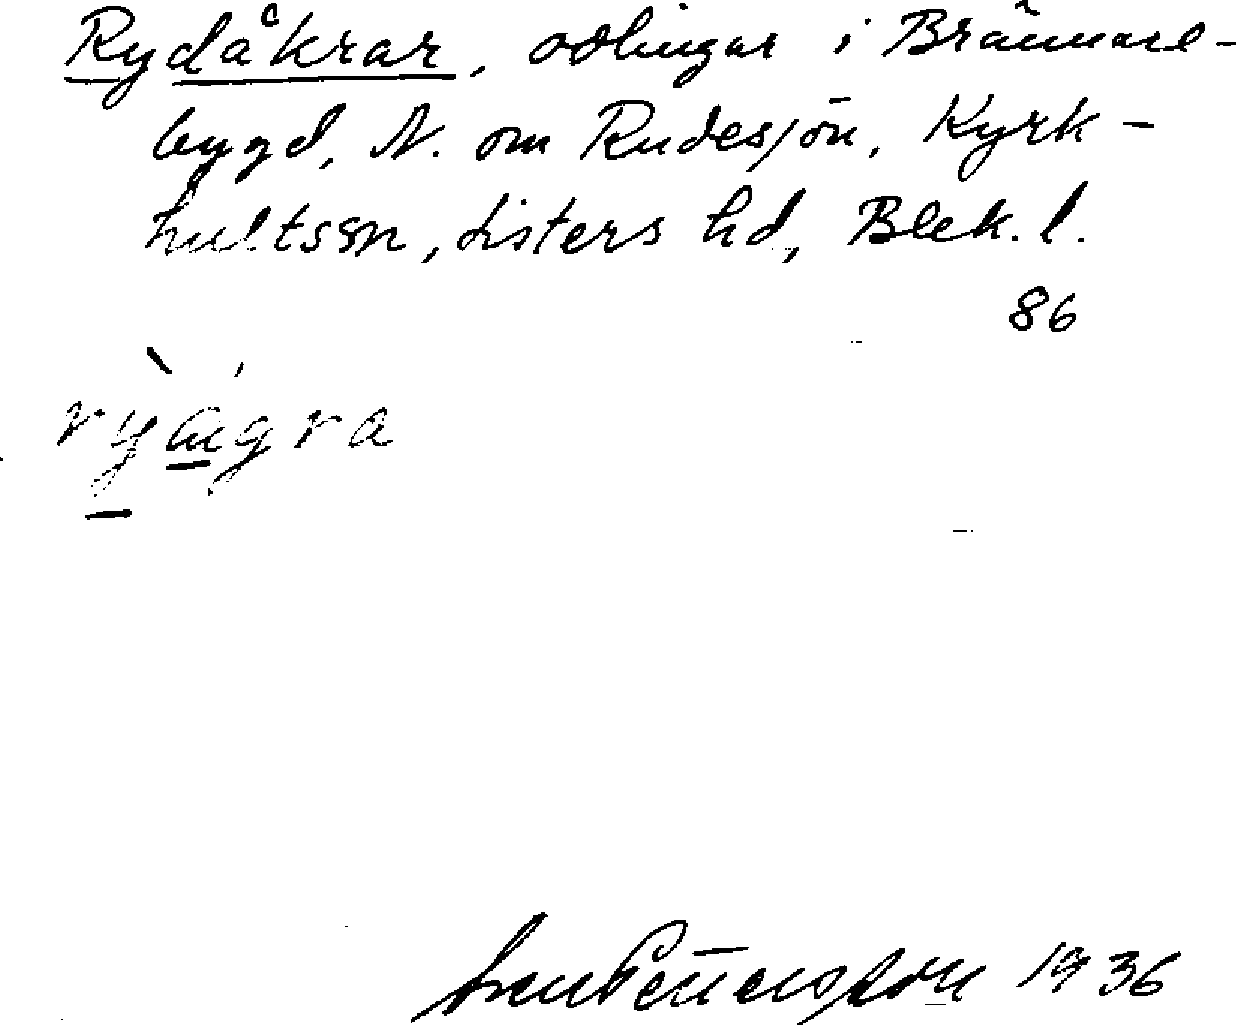 Rydåkrar, odlingar i Brännare-
bygd, N. om Rudesjön, Kyrk-
hultssn, Listers hd, Blek. l.
86
Sven Pettersson 1936